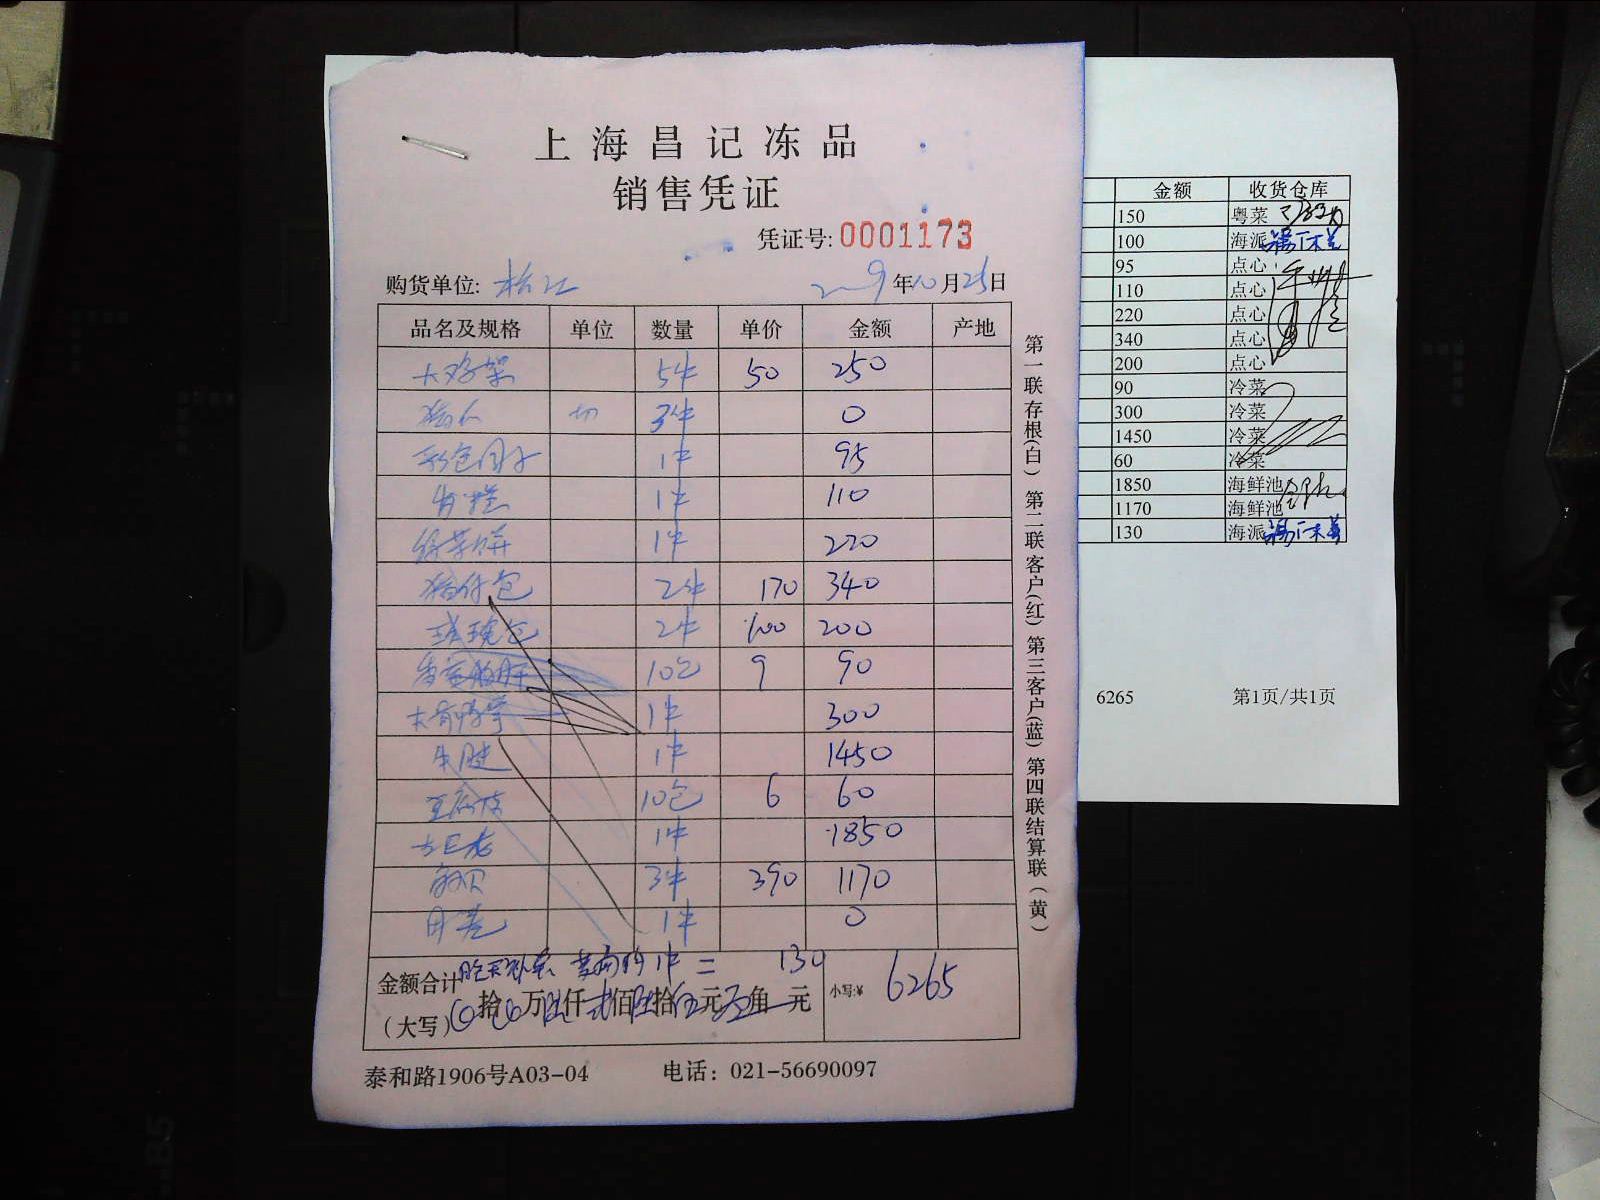 上海昌记冻品
销售凭证
凭证号: 0001173
购货单位: 松江 年10月25日
品名及规格 单位 数量 单价 金额 产地
大鸡架 5件 50 250
3件 0
彩色圆子 1件 95
发糕 1件 110
绿茶饼 1件 220
猪仔包 2件 170 340
2件 100 200
10包 9 90
1件 300
牛腱 1件 1450
豆腐皮 10包 6 60
1件 1850
3件 390 1170
1件 0
金额合计 1件 = 130
(大写) 拾 万 陆仟 贰佰 陆拾 伍元 角 元 小写:¥ 6265
泰和路1906号A03-04 电话: 021-56690097
第一联存根(白) 第二联客户(红) 第三客户(蓝) 第四联结算联(黄)
金额 收货仓库
150 粤菜
100 海派
95 点心
110 点心
220 点心
340 点心
200 点心
90 冷菜
300 冷菜
1450 冷菜
60 冷菜
1850 海鲜池
1170 海鲜池
130 海派
6265 第1页/共1页